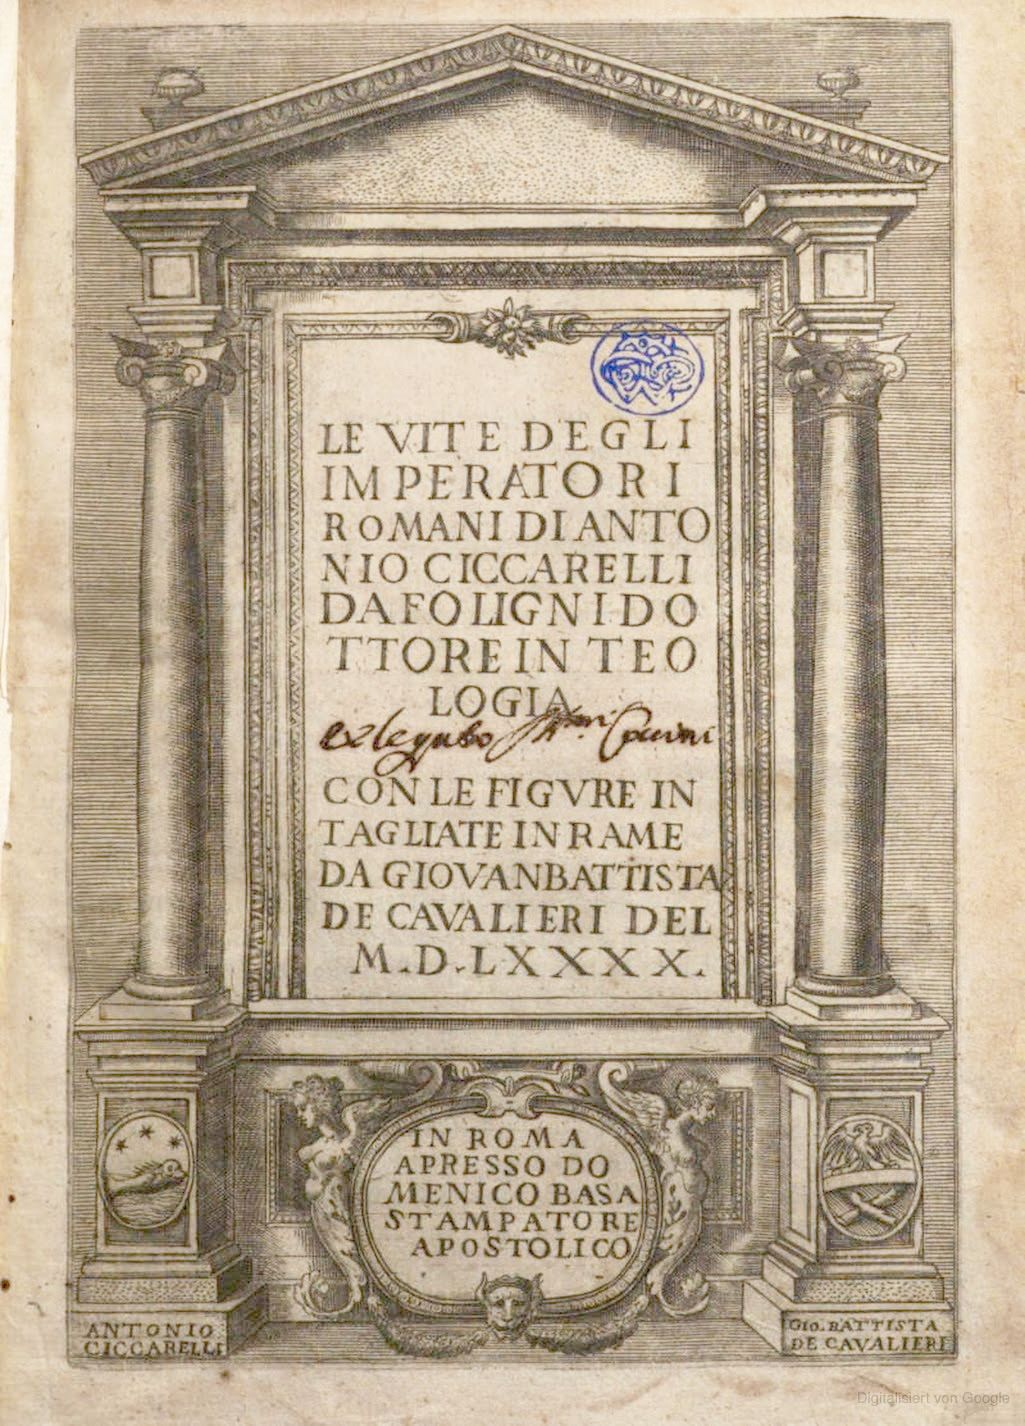 LE VITE DEGLI
IMPERATORI
ROMANI DI ANTO
NIO CICCARELLI
DA FOLIGNI DO
TTORE IN TEO
LOGIA
ex legato
CON LE FIGVRE IN
TAGLIATE IN RAME
DA GIOVANBATTISTA
DE CAVALIERI DEL
M.D.LXXXX.
IN ROMA
APRESSO DO
MENICO BASA
STAMPATORE
APOSTOLICO
ANTONIO
CICCARELLI
GIO. BATTISTA
DE CAVALIERI
Digitalisiert von Google